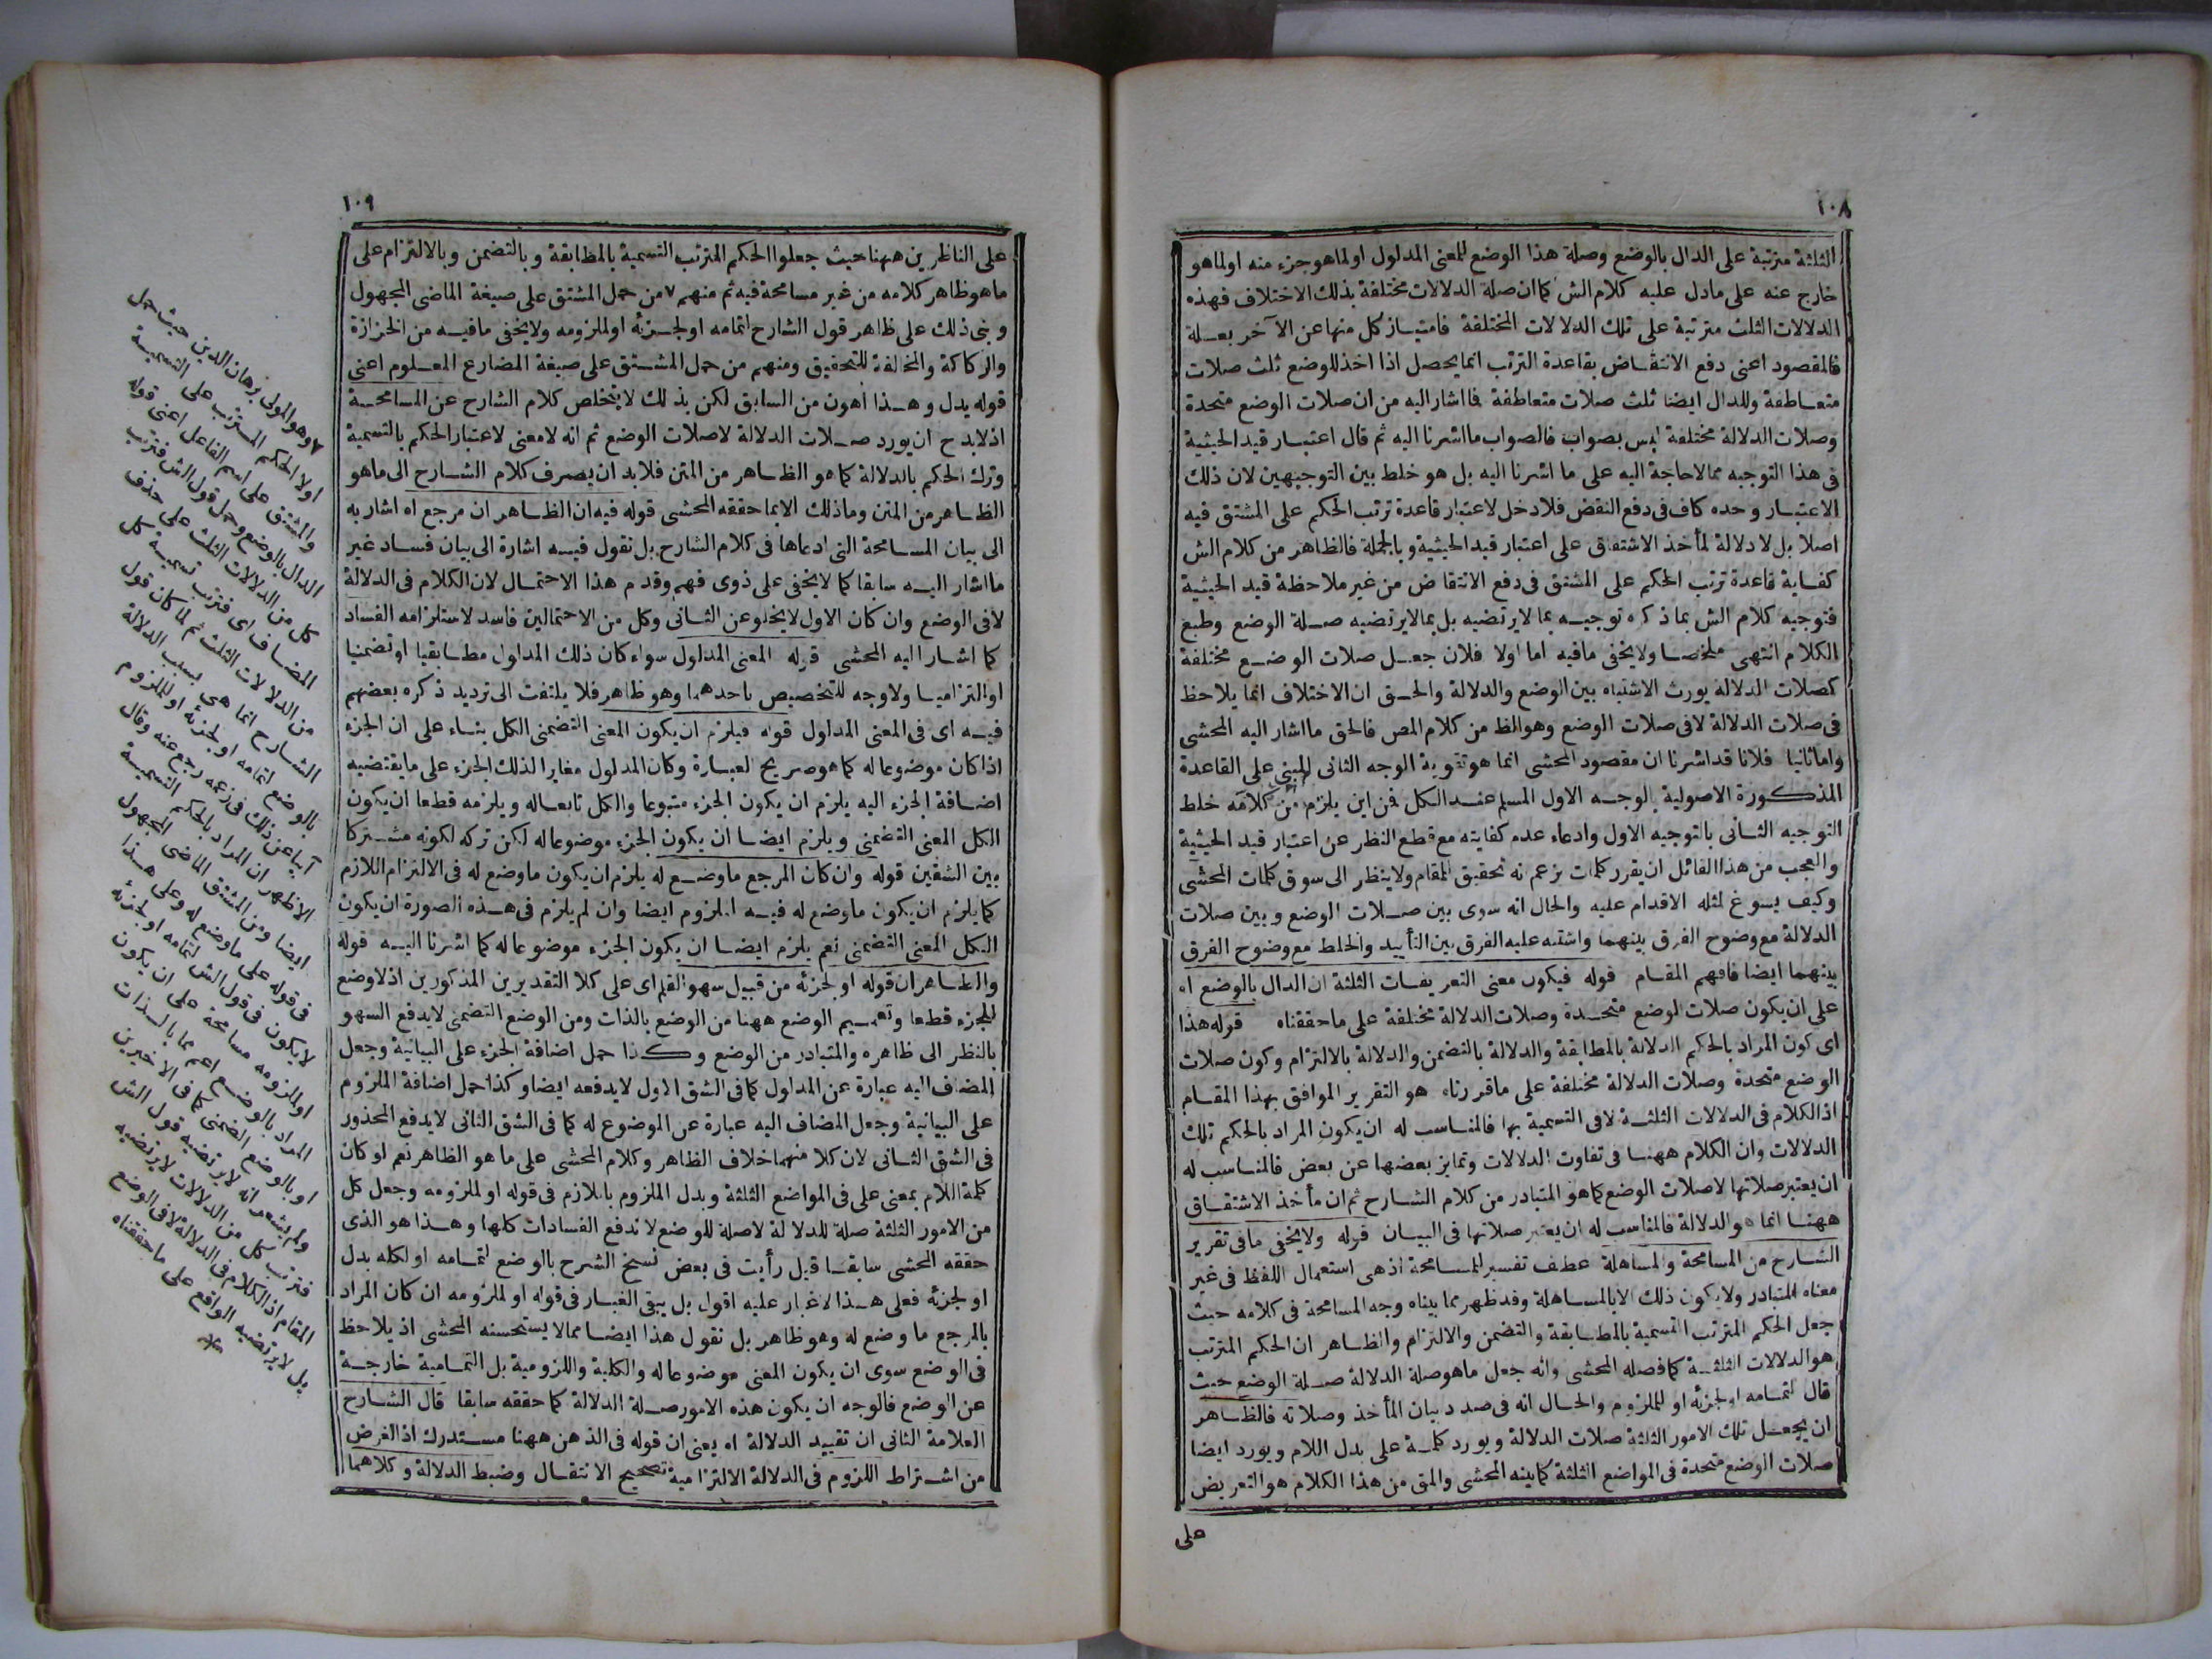 ١٠٨
الثلثة مترتبة على الدال بالوضع وصلة هذا الوضع للمعنى المدلول اولما هوجزء منه اولماهو
خارج عنه على مادل عليه كلام الش كما ان صلة الدلالات مختلفة بذلك الاختلاف فهذه
الدلالات الثلث مترتبة على تلك الدلالات المختلفة فامتياز كل منها عن الآخر بعلة
فالمقصود اعنى دفع الانتقاض بقاعدة الترتب انما يحصل اذا اخذ للوضع ثلث صلات
متعاطفة وللدال ايضا ثلث صلات متعاطفة فااشار اليه من ان صلات الوضع متحدة
وصلات الدلالة مختلفة ليس بصواب فالصواب مااشرنا اليه ثم قال اعتبار قيد الحيثية
فى هذا التوجيه ممالاحاجة اليه على ما اشرنا اليه بل هو خلط بين التوجيهين لان ذلك
الاعتبار وحده كاف فى دفع النقض فلادخل لاعتبار قاعدة ترتب الحكم على المشتق فيه
اصلا بل لا دلالة لمأخذ الاشتقاق على اعتبار قيد الحيثية وبالجملة فالظاهر من كلام الش
كفاية قاعدة ترتب الحكم على المشتق فى دفع الانتقاض من غير ملاحظة قيد الحيثية
فتوجيه كلام الش بماذكره توجيه بما لايرتضيه بل بمالايرتضيه صلة الوضع وطبع
الكلام انتهى ملخصا ولايخفى مافيه اما اولا فلان جعل صلات الوضع مختلفة
كصلات الدلالة يورث الاشتباه بين الوضع والدلالة والحق ان الاختلاف انما يلاحظ
فى صلات الدلالة لافى صلات الوضع وهو الظ من كلام المص فالحق مااشار اليه المحشى
واماثانيا فلانا قداشرنا ان مقصود المحشى انما هو تقوية الوجه الثانى المبنى على القاعدة
المذكورة الاصولية بالوجه الاول المسلم عند الكل فمن اين يلزم من كلامه خلط
التوجيه الثانى بالتوجيه الاول وادعاء عدم كفايته مع قطع النظر عن اعتبار قيد الحيثية
والعجب من هذا القائل ان يقرر كلمات بزعم انه تحقيق المقام ولاينظر الى سوق كلمات المحشى
وكيف يسوغ لمثله الاقدام عليه والحال انه سوى بين صلات الوضع وبين صلات
الدلالة مع وضوح الفرق بينهما واشتبه عليه الفرق بين التأييد والخلط مع وضوح الفرق
بينهما ايضا فافهم المقام قوله فيكون معنى التعريفات الثلثة ان الدال بالوضع اه
على ان يكون صلات الوضع متحدة وصلات الدلالة مختلفة على ماحققناه قوله هذا
اى كون المراد بالحكم الدلالة بالمطابقة والدلالة بالتضمن والدلالة بالالتزام وكون صلات
الوضع متحدة وصلات الدلالة مختلفة على ماقررناه هو التقرير الموافق بهذا المقام
اذ الكلام فى الدلالات الثلثة لافى التسمية بها فالمناسب له ان يكون المراد بالحكم تلك
الدلالات وان الكلام ههنا فى تفاوت الدلالات وتمايز بعضها عن بعض فالمناسب له
ان يعتبر صلاتها لاصلات الوضع كماهو المتبادر من كلام الشارح ثم ان مأخذ الاشتقاق
ههنا انما هو الدلالة فالمناسب له ان يعتبر صلاتها فى البيان قوله ولايخفى مافى تقرير
الشارح من المسامحة والمساهلة عطف تفسير للمسامحة اذهى استعمال اللفظ فى غير
معناه المتبادر ولايكون ذلك الابالمساهلة وقدظهر مما بيناه وجه المسامحة فى كلامه حيث
جعل الحكم المترتب التسمية بالمطابقة والتضمن والالتزام والظاهر ان الحكم المترتب
هو الدلالات الثلثة كمافصله المحشى وانه جعل ماهوصلة الدلالة صلة الوضع حيث
قال لتمامه او لجزئه او للملزوم والحال انه فى صدد بيان المأخذ وصلاته فالظاهر
ان يجعل تلك الامور الثلثة صلات الدلالة ويورد كلمة على بدل اللام ويورد ايضا
صلات الوضع متحدة فى المواضع الثلثة كمابينه المحشى والمق من هذا الكلام هو التعريض
على
١٠٩
على الناظرين ههنا حيث جعلوا الحكم المترتب التسمية بالمطابقة وبالتضمن وبالالتزام على
ماهوظاهر كلامه من غير مسامحة فيه ثم منهم ٧ من حمل المشتق على صيغة الماضى المجهول
وبنى ذلك على ظاهر قول الشارح لتمامه اولجزئه اولملزومه ولايخفى مافيه من الحزازة
والركاكة والمخالفة للتحقيق ومنهم من حمل المشتق على صيغة المضارع المعلوم اعنى
قوله يدل وهذا اهون من السابق لكن بذلك لايتخلص كلام الشارح عن المسامحة
اذلابد ح ان يورد صلات الدلالة لاصلات الوضع ثم انه لامعنى لاعتبار الحكم بالتسمية
وترك الحكم بالدلالة كما هو الظاهر من المتن فلابد ان يصرف كلام الشارح الى ماهو
الظاهر من المتن وماذلك الابما حققه المحشى قوله فيه ان الظاهر ان مرجع اه اشاربه
الى بيان المسامحة التى ادعاها فى كلام الشارح بل نقول فيه اشارة الى بيان فساد غير
مااشار اليه سابقا كما لايخفى على ذوى فهم وقدم هذا الاحتمال لان الكلام فى الدلالة
لافى الوضع وان كان الاول لايخلو عن الثانى وكل من الاحتمالين فاسد لاستلزامه الفساد
كما اشار اليه المحشى قوله المعنى المدلول سواء كان ذلك المدلول مطابقيا اوتضمنيا
اوالتزاميا ولاوجه للتخصيص باحدهما وهو ظاهر فلا يلتفت الى ترديد ذكره بعضهم
فيه اى فى المعنى المدلول قوله فيلزم ان يكون المعنى التضمنى الكل بناء على ان الجزء
اذا كان موضوعاله كما هو صريح العبارة وكان المدلول مغايرا لذلك الجزء على مايقتضيه
اضافة الجزء اليه يلزم ان يكون الجزء متبوعا والكل تابعاله ويلزمه قطعا ان يكون
الكل المعنى التضمنى ويلزم ايضا ان يكون الجزء موضوعاله لكن تركه لكونه مشتركا
بين الشقين قوله وان كان المرجع ماوضع له يلزم ان يكون ماوضع له فى الالتزام اللازم
كمايلزم ان يكون ماوضع له فيه الملزوم ايضا وان لم يلزم فى هذه الصورة ان يكون
الكل المعنى التضمنى نعم يلزم ايضا ان يكون الجزء موضوعاله كما اشرنا اليه قوله
والظاهر ان قوله او لجزئه من قبيل سهو القلم اى على كلا التقديرين المذكورين اذلاوضع
للجزء قطعا وتعميم الوضع ههنا من الوضع بالذات ومن الوضع التضمنى لايدفع السهو
بالنظر الى ظاهره والمتبادر من الوضع وكذا حمل اضافة الجزء على البيانية وجعل
المضاف اليه عبارة عن المدلول كما فى الشق الاول لايدفعه ايضا وكذا حمل اضافة الملزوم
على البيانية وجعل المضاف اليه عبارة عن الموضوع له كما فى الشق الثانى لايدفع المحذور
فى الشق الثانى لان كلا منهما خلاف الظاهر وكلام المحشى على ما هو الظاهر نعم لو كان
كلمة اللام بمعنى على فى المواضع الثلثة وبدل الملزوم باللازم فى قوله او لملزومه وجعل كل
من الامور الثلثة صلة للدلالة لاصلة للوضع لاندفع الفسادات كلها وهذا هو الذى
حققه المحشى سابقا قيل رأيت فى بعض نسخ الشرح بالوضع لتمامه او لكله بدل
اولجزئه فعلى هذا لاغبار عليه اقول بل يبقى الغبار فى قوله او لملزومه ان كان المراد
بالمرجع ما وضع له وهو ظاهر بل نقول هذا ايضا ممالا يستحسنه المحشى اذ يلاحظ
فى الوضع سوى ان يكون المعنى موضوعاله والكلية واللزومية بل التمامية خارجة
عن الوضع فالوجه ان يكون هذه الامور صلة الدلالة كما حققه سابقا قال الشارح
العلامة الثانى ان تقييد الدلالة اه يعنى ان قوله فى الذهن ههنا مستدرك اذ الغرض
من اشتراط اللزوم فى الدلالة الالتزامية تصحيح الانتقال وضبط الدلالة وكلاهما
٧ وهو المولى برهان الدين حيث حمل
اولا الحكم المترتب على التسمية
والمشتق على اسم الفاعل اعنى قوله
الدال بالوضع وحمل قول الش فترتب
كل من الدلالات الثلث على حذف
المضاف اى فترتب تسمية كل
من الدلالات الثلث ثم لما كان قول
الشارح انما هى بسبب الدلالة
بالوضع لتمامه او لجزئه او للملزوم
آبيا عن ذلك فى زعمه رجع عنه وقال
الاظهر ان المراد بالحكم التسمية
ايضا ومن المشتق الماضى المجهول
فى قوله على ماوضع له وعلى هذا
لايكون فى قول الش لتمامه او لجزئه
او لملزومه مسامحة على ان يكون
المراد بالوضع اعم مما بالذات
او بالوضع الضمنى كما فى الاخيرين
ولم يشعر انه لايرتضيه قول الش
فترتب كل من الدلالات لايرتضيه
المقام اذ الكلام فى الدلالة لافى الوضع
بل لايرتضيه الواقع على ماحققناه